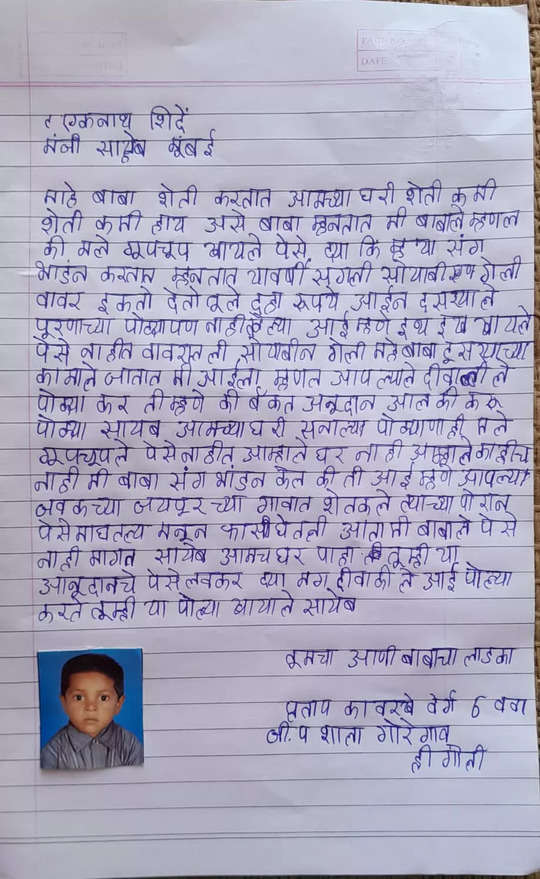 DATE
र एकनाथ शिदें
मंत्री साहेब मूंबई
माहे बाबा शेती करतात आमच्या घरी शेती कमी
शेती कमी हाय असे बाबा म्हनतात मी बाबाले म्हणल
की मले गूपचूप खायले पेसे द्या कि म्ह या संग
भांडन करतात म्हनतात यावर्षी सगली सोयाबीन गेली
वावर इकतो देतो तूले दहा रूपये आईन दसऱ्याले
पूरणाच्या पोळ्यापण नाही केल्या आई म्हणे इथ इख खायले
पेसे नाहीत वावरातली सोयबीन गेली माहे बाबा दूसऱ्याच्या
कामाले जातात मी आईला म्हणत आपल्याते दीवाळी ले
पोळ्या कर ती म्हणे की बॅकत अनूदान आल की करू
पोळ्या सायब आमच्या घरी सनाल्या पोळ्यानाही मले
गूपचूपले पेसे नाहीत आम्हाले घर नाही आम्हाले काहीच
नाही मी बाबा संग भांडन केल की ती आई म्हणे आपल्या
जवळच्या जयपूरच्या गावात शेतकले त्याच्या पोरान
पेसे माघतल्य मनून फासी घेतली आता मी बाबाले पेसे
नाही मागत सायेब आमच घर पाहा तूम्ही या
आनूदानचे पेसे लवकर द्या मग दीवाळी ले आई पोळ्या
करते तूम्ही या पोळ्या खायाले सायेब
तूमचा आणी बाबाचा लाडका
प्रताप कावरखे वर्ग 6 ववा
जी.प शाळा गोरेगाव
हीगोली